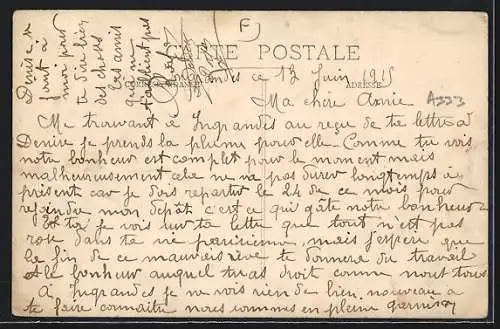 F
CARTE POSTALE
CORRESPONDANCE
ADRESSE
A223
Ingrandes ce 13 Juin 1915
Ma chère Annie
Me trouvant à Ingrandes au reçu de ta lettre à
Denise je prends la plume pour elle. Comme tu vois
notre bonheur est complet pour le moment mais
malheureusement cela ne va pas durer longtemps à
présent car je dois repartir le 24 de ce mois pour
rejoindre mon dépôt c'est ce qui gâte notre bonheur.
Et toi je vois sur ta lettre que tout n'est pas
rose dans ta vie parisienne, mais j'espère que
la fin de ce mauvais rêve te donnera du travail
et le bonheur auquel tu as droit comme nous tous
A Ingrandes je ne vois rien de bien nouveau à
te faire connaître nous sommes en pleine
Denise se
joint à
moi pour
te dire bien
des choses
les amis
qui ne
t'oublient pas